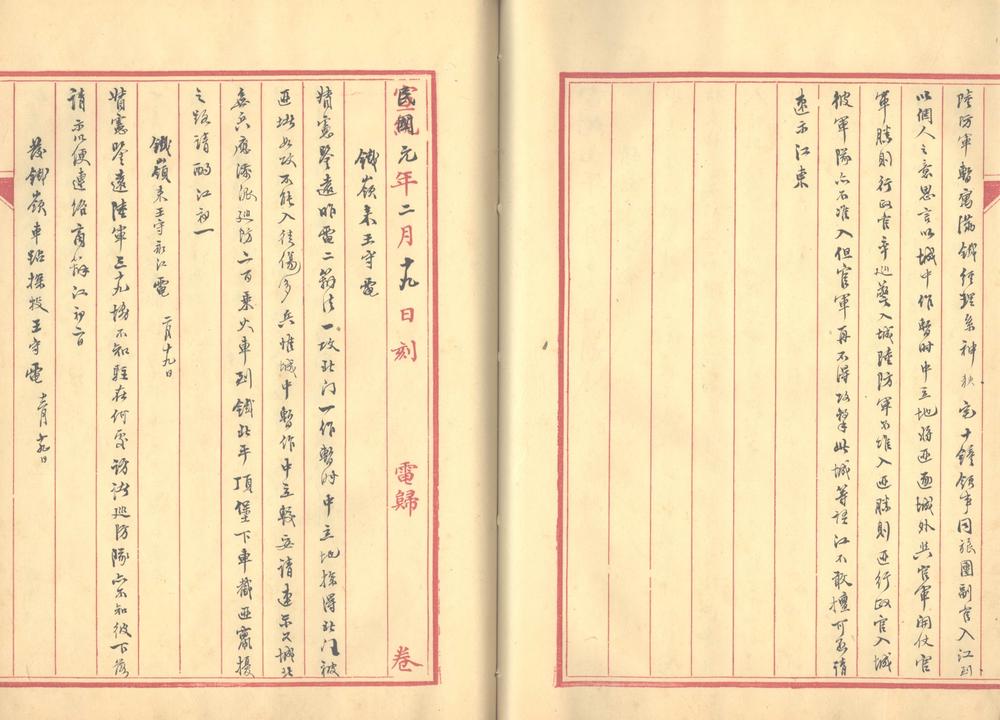 陸防軍暫寓滿鐵經理系神秋宅十鐘領事同旅團副官入江到
以個人之意思言以城中作暫時中立地將匪逐城外與官軍開仗官
軍勝則行政官帶巡警入城陸防軍不准入匪勝則匪行政官入城
彼軍隊亦不准入但官軍再不得攻擊此城等語江不敢擅可否請
速示江東
民國元年二月十九日刻 電歸 卷
鐵嶺來王守電
督憲鑒遠昨電二籌法一攻北門一作暫時中立地據得北門被
匪堵如攻不能入徒傷多兵惟城中暫作中立較妥請速示又城北
無兵應添派巡防二百乘火車到鐵北平頂堡下車截匪竄擾
之路請酌江初一
鐵嶺來王守永江電 二月十九日
督憲鑒遠陸軍三十九協不知駐在何處訪派巡防隊亦不知彼下落
請示以便連絡商辦江初二
發鐵嶺車站探投王守電 二月十九日